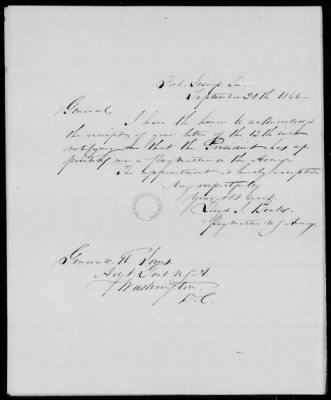 Fort Jesup La.
September 28th 1844
General,
I have the honor to acknowledge
the receipt of your letter of the 13th inst
notifying me that the President has ap-
pointed me a Paymaster in the Army.
The appointment is hereby accepted.
Very respectfully
Your obt Servt
Lloyd J. Beall
Paymaster U.S. Army
General R. Jones
Adjt Genl U.S.A
Washington
D.C.